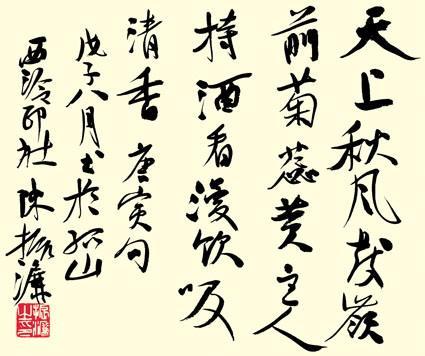 天上秋风发巖
前菊蕊黄主人
持酒看漫饮吸
清香 唐寅句
戊子八月书於孤山
西泠印社 陈振濂